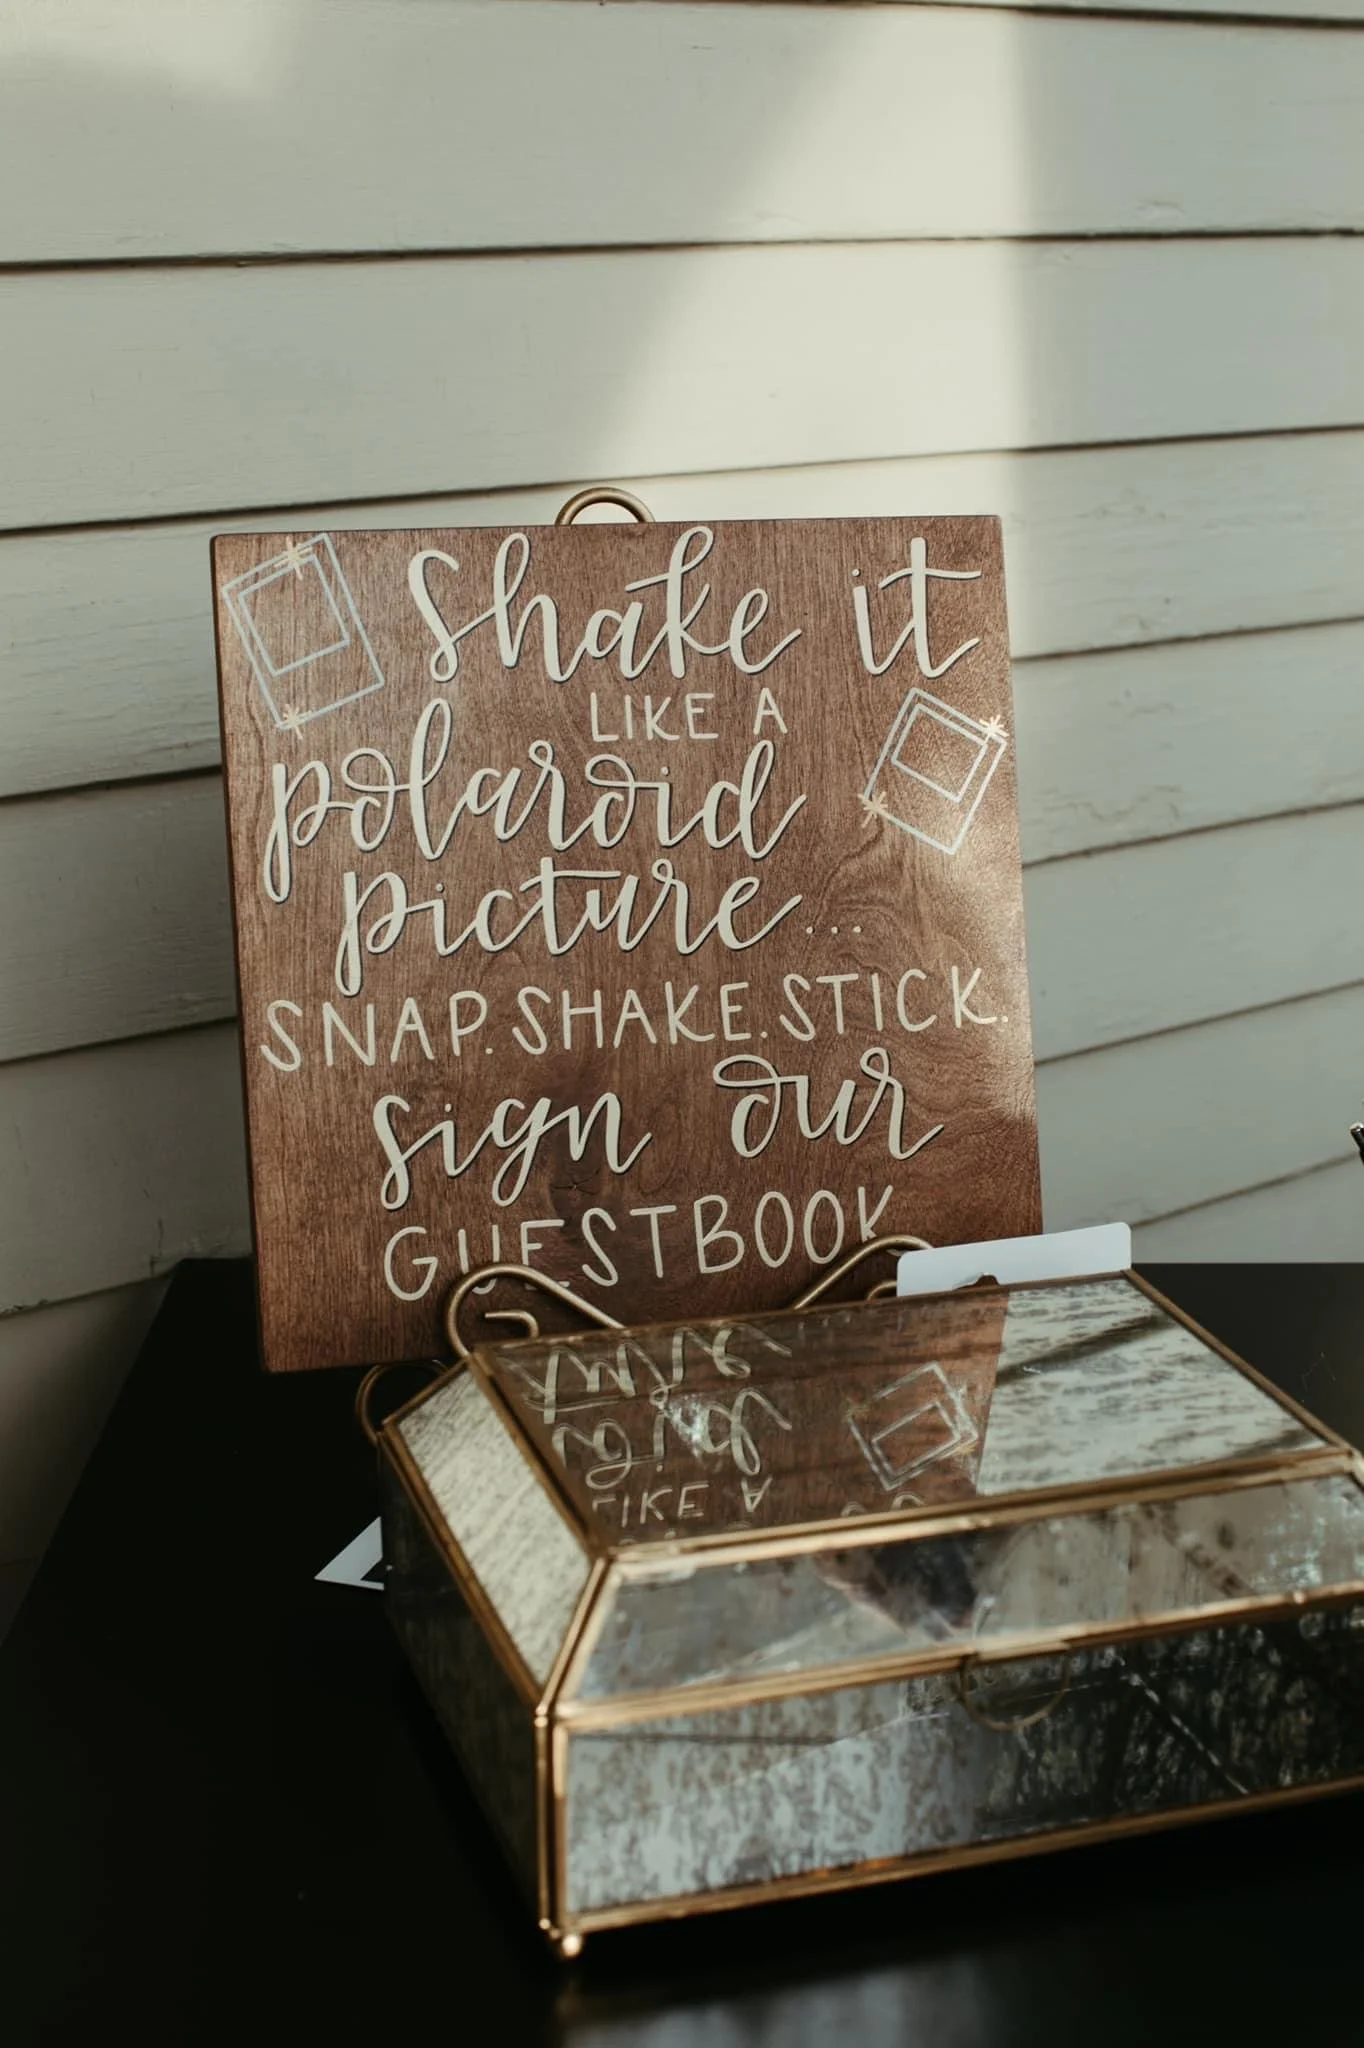 Shake it
LIKE A
polaroid
picture...
SNAP. SHAKE. STICK.
sign our
GUESTBOOK